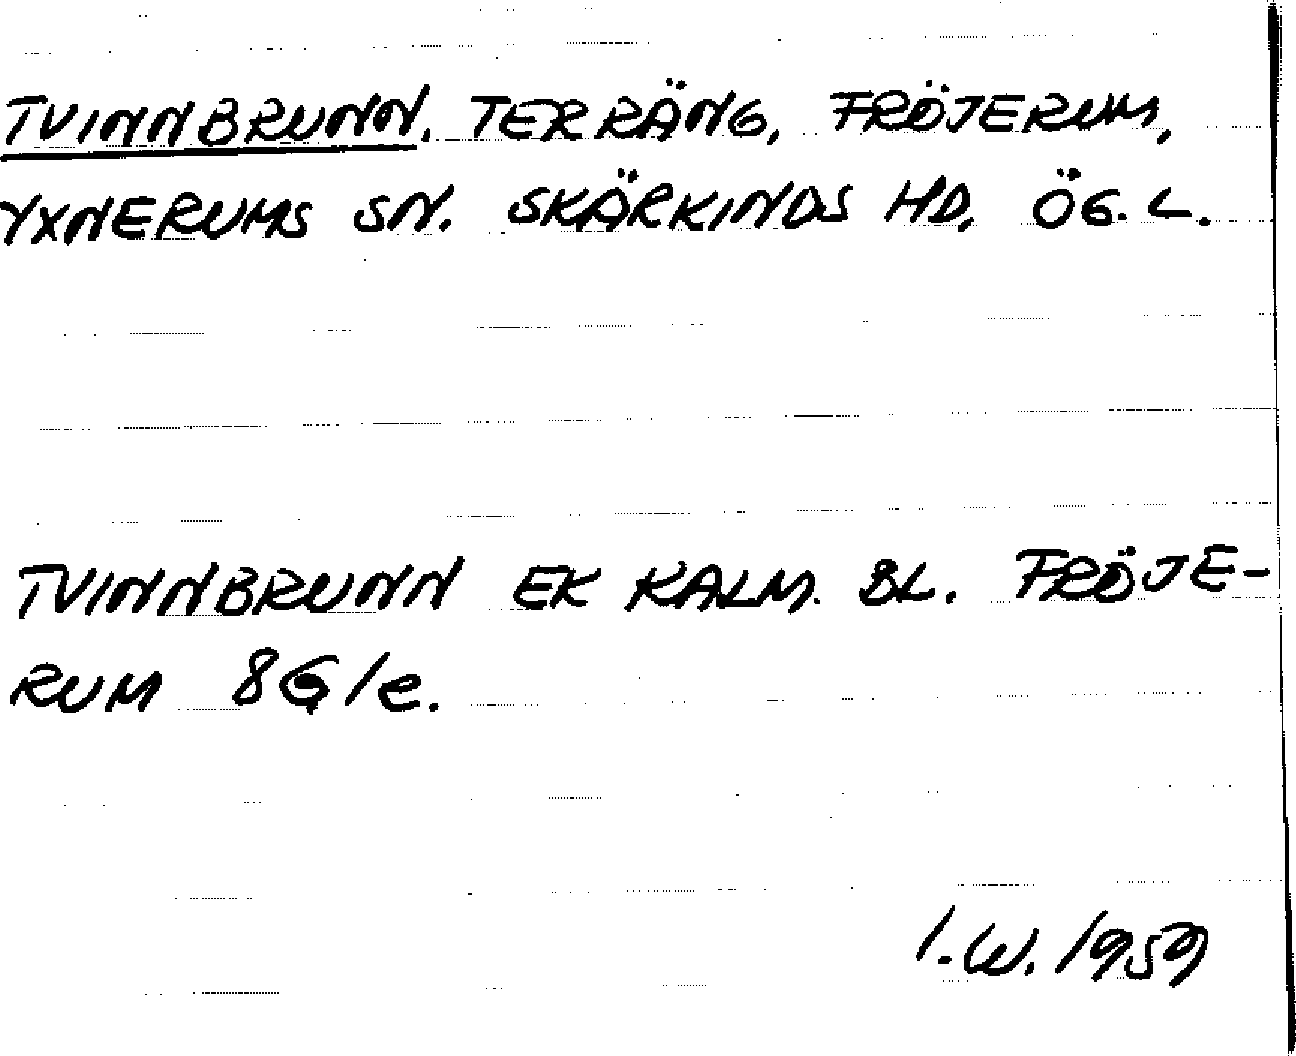 TVINNBRUNN. TERRÄNG, FRÖJERUM,
YXNERUMS SN. SKÄRKINDS HD, ÖG. L.
TVINNBRUNN EK KALM. BL. FRÖJE-
RUM 8G/e.
I.W. 1959